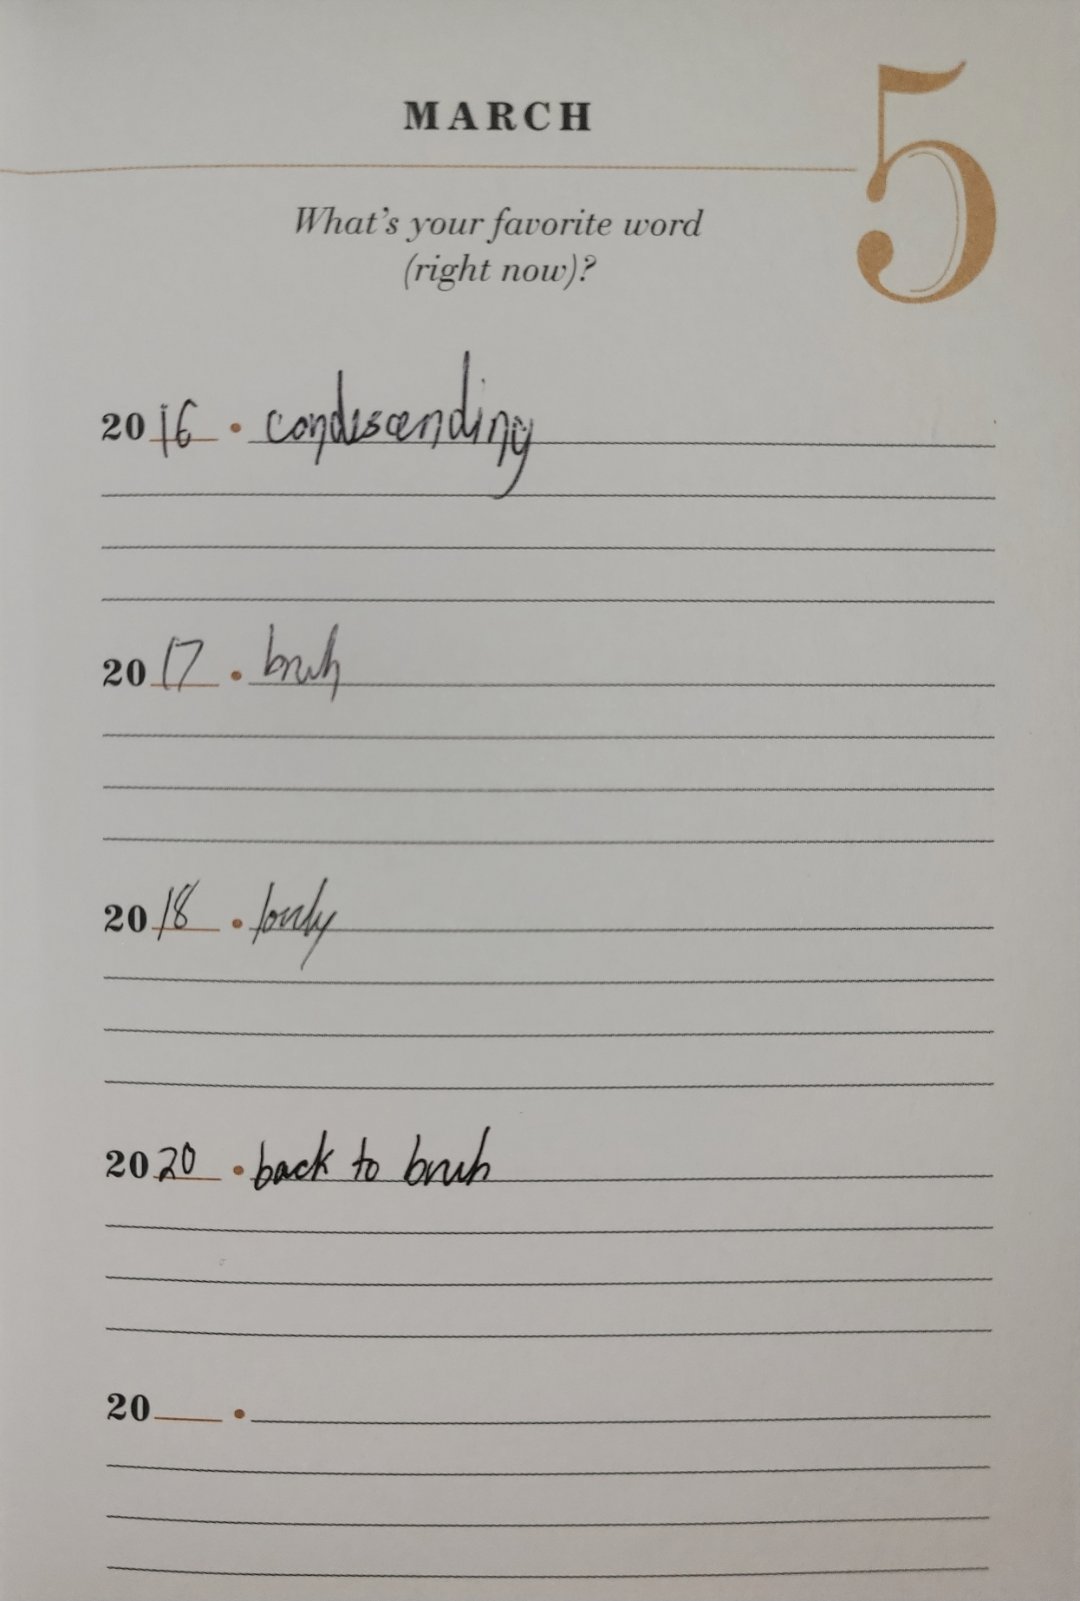 MARCH
5
What's your favorite word
(right now)?
2016 • condescending
2017 • bruh
2018 •
2020 • back to bruh
20 •